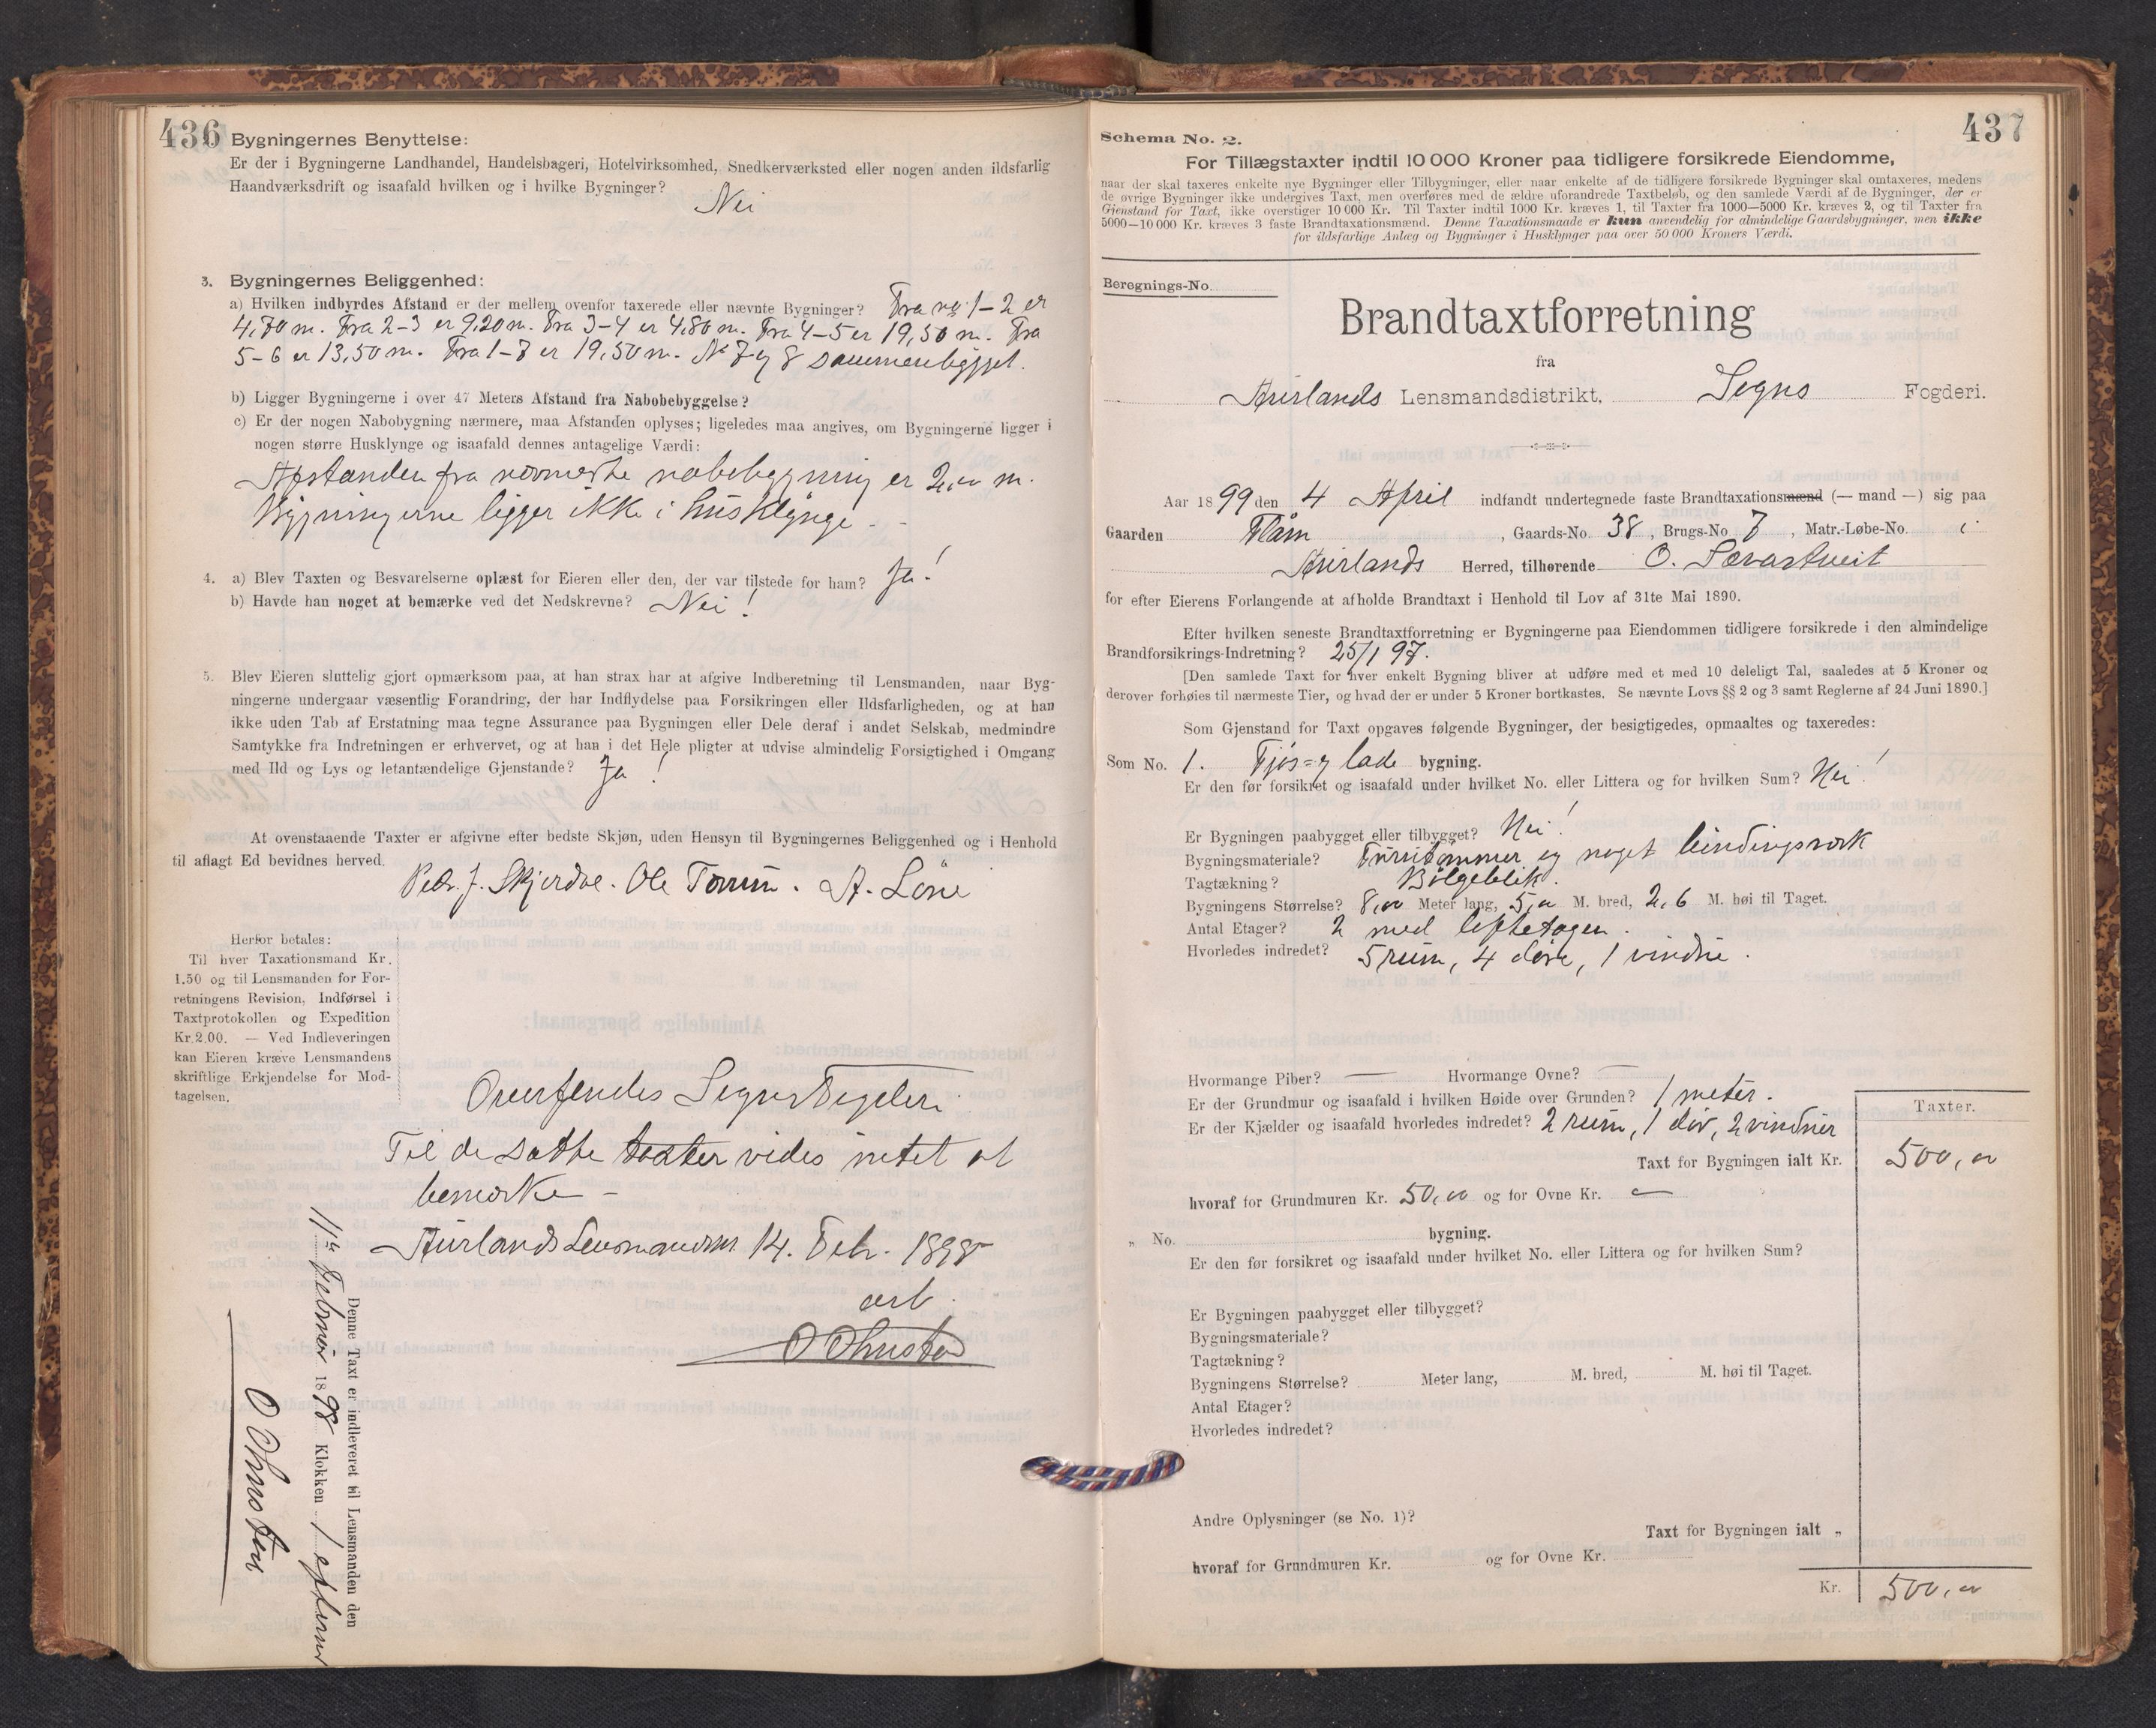 436
Bygningernes Benyttelse:
Er der i Bygningerne Landhandel, Handelsbageri, Hotelvirksomhed, Snedkerværksted eller nogen anden ildsfarlig
Haandværksdrift og isaafald hvilken og i hvilke Bygninger?
Nei
3. Bygningernes Beliggenhed:
a) Hvilken indbyrdes Afstand er der mellem ovenfor taxerede eller nævnte Bygninger? Fra no 1-2 er
4,70 m. Fra 2-3 er 9,20 m. Fra 3-4 er 4,80 m. Fra 4-5 er 19,50 m. Fra
5-6 er 13,50 m. Fra 1-7 er 19,50 m. No 7 og 8 sammenbygget.
b) Ligger Bygningerne i over 47 Meters Afstand fra Nabobebyggelse?
c) Er der nogen Nabobygning nærmere, maa Afstanden oplyses; ligeledes maa angives, om Bygningerne ligger i
nogen større Husklynge og isaafald dennes antagelige Værdi:
Afstanden fra nærmeste nabobygning er 2,00 m.
Bygningerne ligger ikke i husklynge.
4. a) Blev Taxten og Besvarelserne oplæst for Eieren eller den, der var tilstede for ham? Ja!
b) Havde han noget at bemærke ved det Nedskrevne? Nei!
5. Blev Eieren sluttelig gjort opmærksom paa, at han strax har at afgive Indberetning til Lensmanden, naar Byg-
ningerne undergaar væsentlig Forandring, der har Indflydelse paa Forsikringen eller Ildsfarligheden, og at han
ikke uden Tab af Erstatning maa tegne Assurance paa Bygningen eller Dele deraf i andet Selskab, medmindre
Samtykke fra Indretningen er erhvervet, og at han i det Hele pligter at udvise almindelig Forsigtighed i Omgang
med Ild og Lys og letantændelige Gjenstande? Ja!
At ovenstaaende Taxter er afgivne efter bedste Skjøn, uden Hensyn til Bygningernes Beliggenhed og i Henhold
til aflagt Ed bevidnes herved.
Peder J. Skjerdal. Ole Torum. A. Löne
Herfor betales:
Til hver Taxationsmand Kr.
1.50 og til Lensmanden for For-
retningens Revision, Indførsel i
Taxtprotokollen og Expedition
Kr. 2.00. — Ved Indleveringen
kan Eieren kræve Lensmandens
skriftlige Erkjendelse for Mod-
tagelsen.
Oversendes Sogns Fogderi.
Til de satte taxter vides intet at
bemærke –
Aurlands Lensmands 14. Feb. 1898
arb.
O Ohnstad
Denne Taxt er indleveret til Lensmanden den
11te Februar 1898 Klokken 1 efterm
O Ohnsten
437
Schema No. 2.
For Tillægstaxter indtil 10 000 Kroner paa tidligere forsikrede Eiendomme,
naar der skal taxeres enkelte nye Bygninger eller Tilbygninger, eller naar enkelte af de tidligere forsikrede Bygninger skal omtaxeres, medens
de øvrige Bygninger ikke undergives Taxt, men overføres med de ældre uforandrede Taxtbeløb, og den samlede Værdi af de Bygninger, der er
Gjenstand for Taxt, ikke overstiger 10 000 Kr. Til Taxter indtil 1000 Kr. kræves 1, til Taxter fra 1000—5000 Kr. kræves 2, og til Taxter fra
5000—10 000 Kr. kræves 3 faste Brandtaxationsmænd. Denne Taxationsmaade er kun anvendelig for almindelige Gaardsbygninger, men ikke
for ildsfarlige Anlæg og Bygninger i Husklynger paa over 50 000 Kroners Værdi.
Beregnings-No.
Brandtaxtforretning
fra
Aurlands Lensmandsdistrikt, Sogns Fogderi.
Aar 1899 den 4 April indfandt undertegnede faste Brandtaxationsmænd (— mand —) sig paa
Gaarden Flåm, Gaards-No. 38, Brugs-No 7, Matr.-Løbe-No. i
Aurlands Herred, tilhørende O. Tærastveit
for efter Eierens Forlangende at afholde Brandtaxt i Henhold til Lov af 31te Mai 1890.
Efter hvilken seneste Brandtaxtforretning er Bygningerne paa Eiendommen tidligere forsikrede i den almindelige
Brandforsikrings-Indretning? 25/1 97.
[Den samlede Taxt for hver enkelt Bygning bliver at udføre med et med 10 deleligt Tal, saaledes at 5 Kroner og
derover forhøies til nærmeste Tier, og hvad der er under 5 Kroner bortkastes. Se nævnte Lovs §§ 2 og 3 samt Reglerne af 24 Juni 1890.]
Som Gjenstand for Taxt opgaves følgende Bygninger, der besigtigedes, opmaaltes og taxeredes:
Som No. 1. Fjøs= og lade bygning.
Er den før forsikret og isaafald under hvilket No. eller Littera og for hvilken Sum? Nei!
Er Bygningen paabygget eller tilbygget? Nei!
Bygningsmateriale? Furutømmer og noget bindingsværk
Tagtækning? Bølgeblik.
Bygningens Størrelse? 8,00 Meter lang, 5,00 M. bred, 2,6 M. høi til Taget.
Antal Etager? 2 med loftetagen.
Hvorledes indredet? 5 rum, 4 døre, 1 vindue.
Hvormange Piber? — Hvormange Ovne? —
Er der Grundmur og isaafald i hvilken Høide over Grunden? 1 meter.
Er der Kjælder og isaafald hvorledes indredet? 2 rum, 1 dør, 2 vinduer
Taxter.
Taxt for Bygningen ialt Kr. 500,00
hvoraf for Grundmuren Kr. 50,00 og for Ovne Kr. —
„ No. bygning.
Er den før forsikret og isaafald under hvilket No. eller Littera og for hvilken Sum?
Er Bygningen paabygget eller tilbygget?
Bygningsmateriale?
Tagtækning?
Bygningens Størrelse? Meter lang, M. bred, M. høi til Taget.
Antal Etager?
Hvorledes indredet?
Andre Oplysninger (se No. 1)?
Taxt for Bygningen ialt „
hvoraf for Grundmuren Kr. og for Ovne Kr.
Kr. 500,00